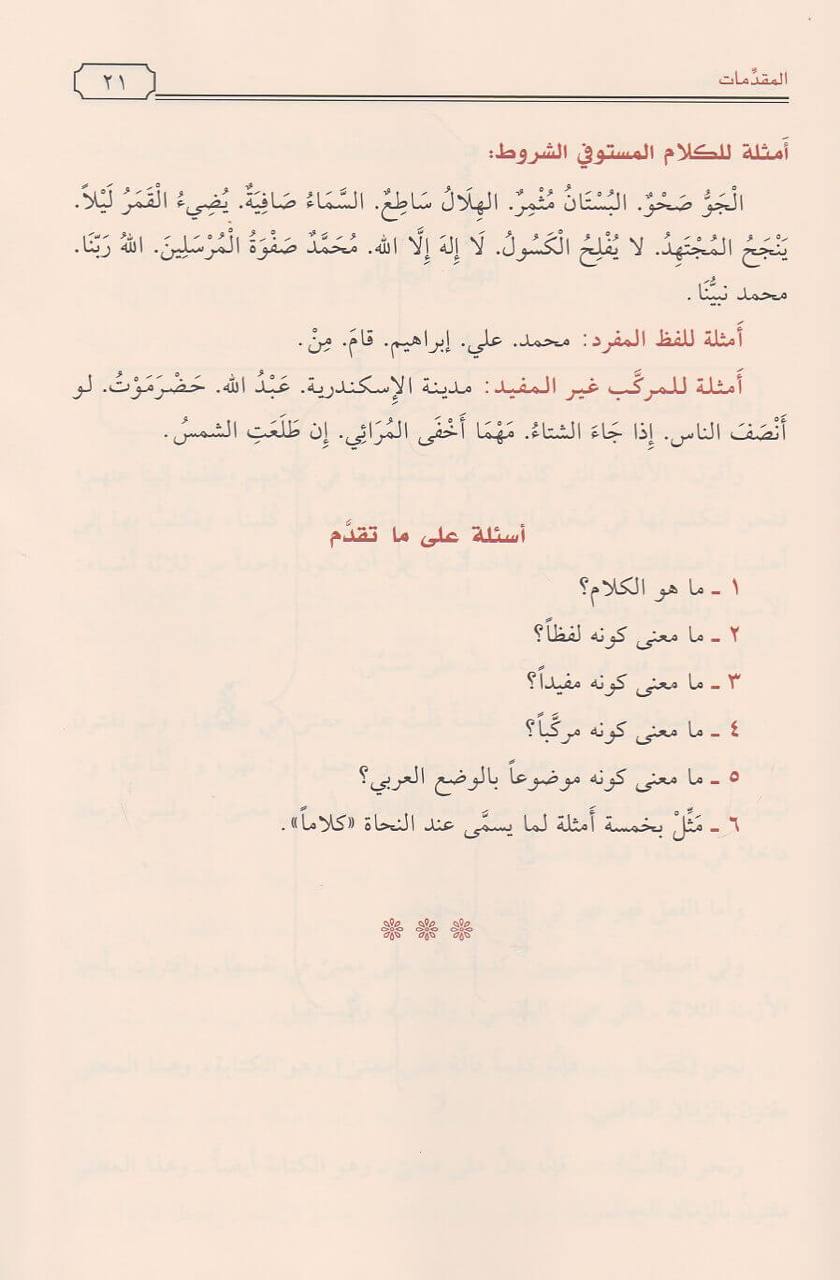 المقدِّمات
٢١
أَمثلة للكلام المستوفي الشروط:
الْجَوُّ صَحْوٌ. البُسْتَانُ مُثْمِرٌ. الهِلَالُ سَاطِعٌ. السَّمَاءُ صَافِيَةٌ. يُضِيءُ الْقَمَرُ لَيْلاً.
يَنْجَحُ المُجْتَهِدُ. لا يُفْلِحُ الْكَسُولُ. لَا إِلهَ إِلَّا الله. مُحَمَّدٌ صَفْوَةُ الْمُرْسَلِينَ. اللهُ رَبّنَا.
محمد نبيُّنَا.
أَمثلة للفظ المفرد: محمد. علي. إبراهيم. قامَ. مِنْ.
أَمثلة للمركَّب غير المفيد: مدينة الإِسكندرية. عَبْدُ الله. حَضْرَمَوْتُ. لو
أَنْصَفَ الناس. إذا جَاءَ الشتاءُ. مَهْمَا أَخْفَى المُرَائِي. إن طَلَعَتِ الشمسُ.
أسئلة على ما تقدَّم
١ ـ ما هو الكلام؟
٢ ـ ما معنى كونه لفظاً؟
٣ ـ ما معنى كونه مفيداً؟
٤ ـ ما معنى كونه مركَّباً؟
٥ ـ ما معنى كونه موضوعاً بالوضع العربي؟
٦ ـ مَثِّلْ بخمسة أَمثلة لما يسمَّى عند النحاة «كلاماً».